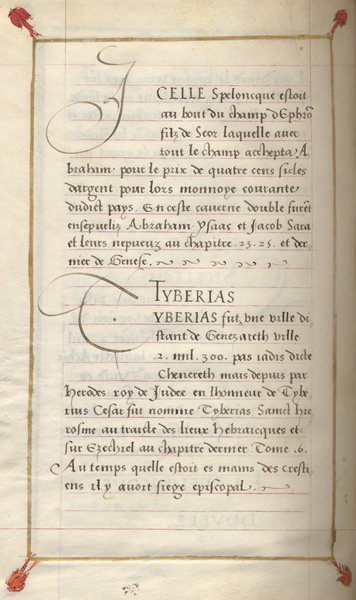 ICELLE Speloncque estoit
au bout du champ d'Ephrõ
filz de Seor laquelle avec
tout le champ acchepta A,
braham pour le prix de quatre cens sicles
dargent pour lors monnoye courante
dudict pays. En ceste caverne double furẽt
ensepueliz Abraham Ysaac et Jacob Sara
et leurs nepueuz au chapitre .23.25. et der,
nier de Genese.
TYBERIAS
TYBERIAS fut vne ville di,
stant de Genezareth ville
2. mil .300. pas iadis dicte
Chenereth mais depuis par
Herodes roy de Judee en lhonneur de Tybe
rius Cesar fut nommé Tyberias Sainct Hie
rosme au traicte des lieux Hebraicques et
sur Ezechiel au chapitre dernier Tome .6.
Au temps quelle estoit es mains des cresti
ens il y avoit siege episcopal.